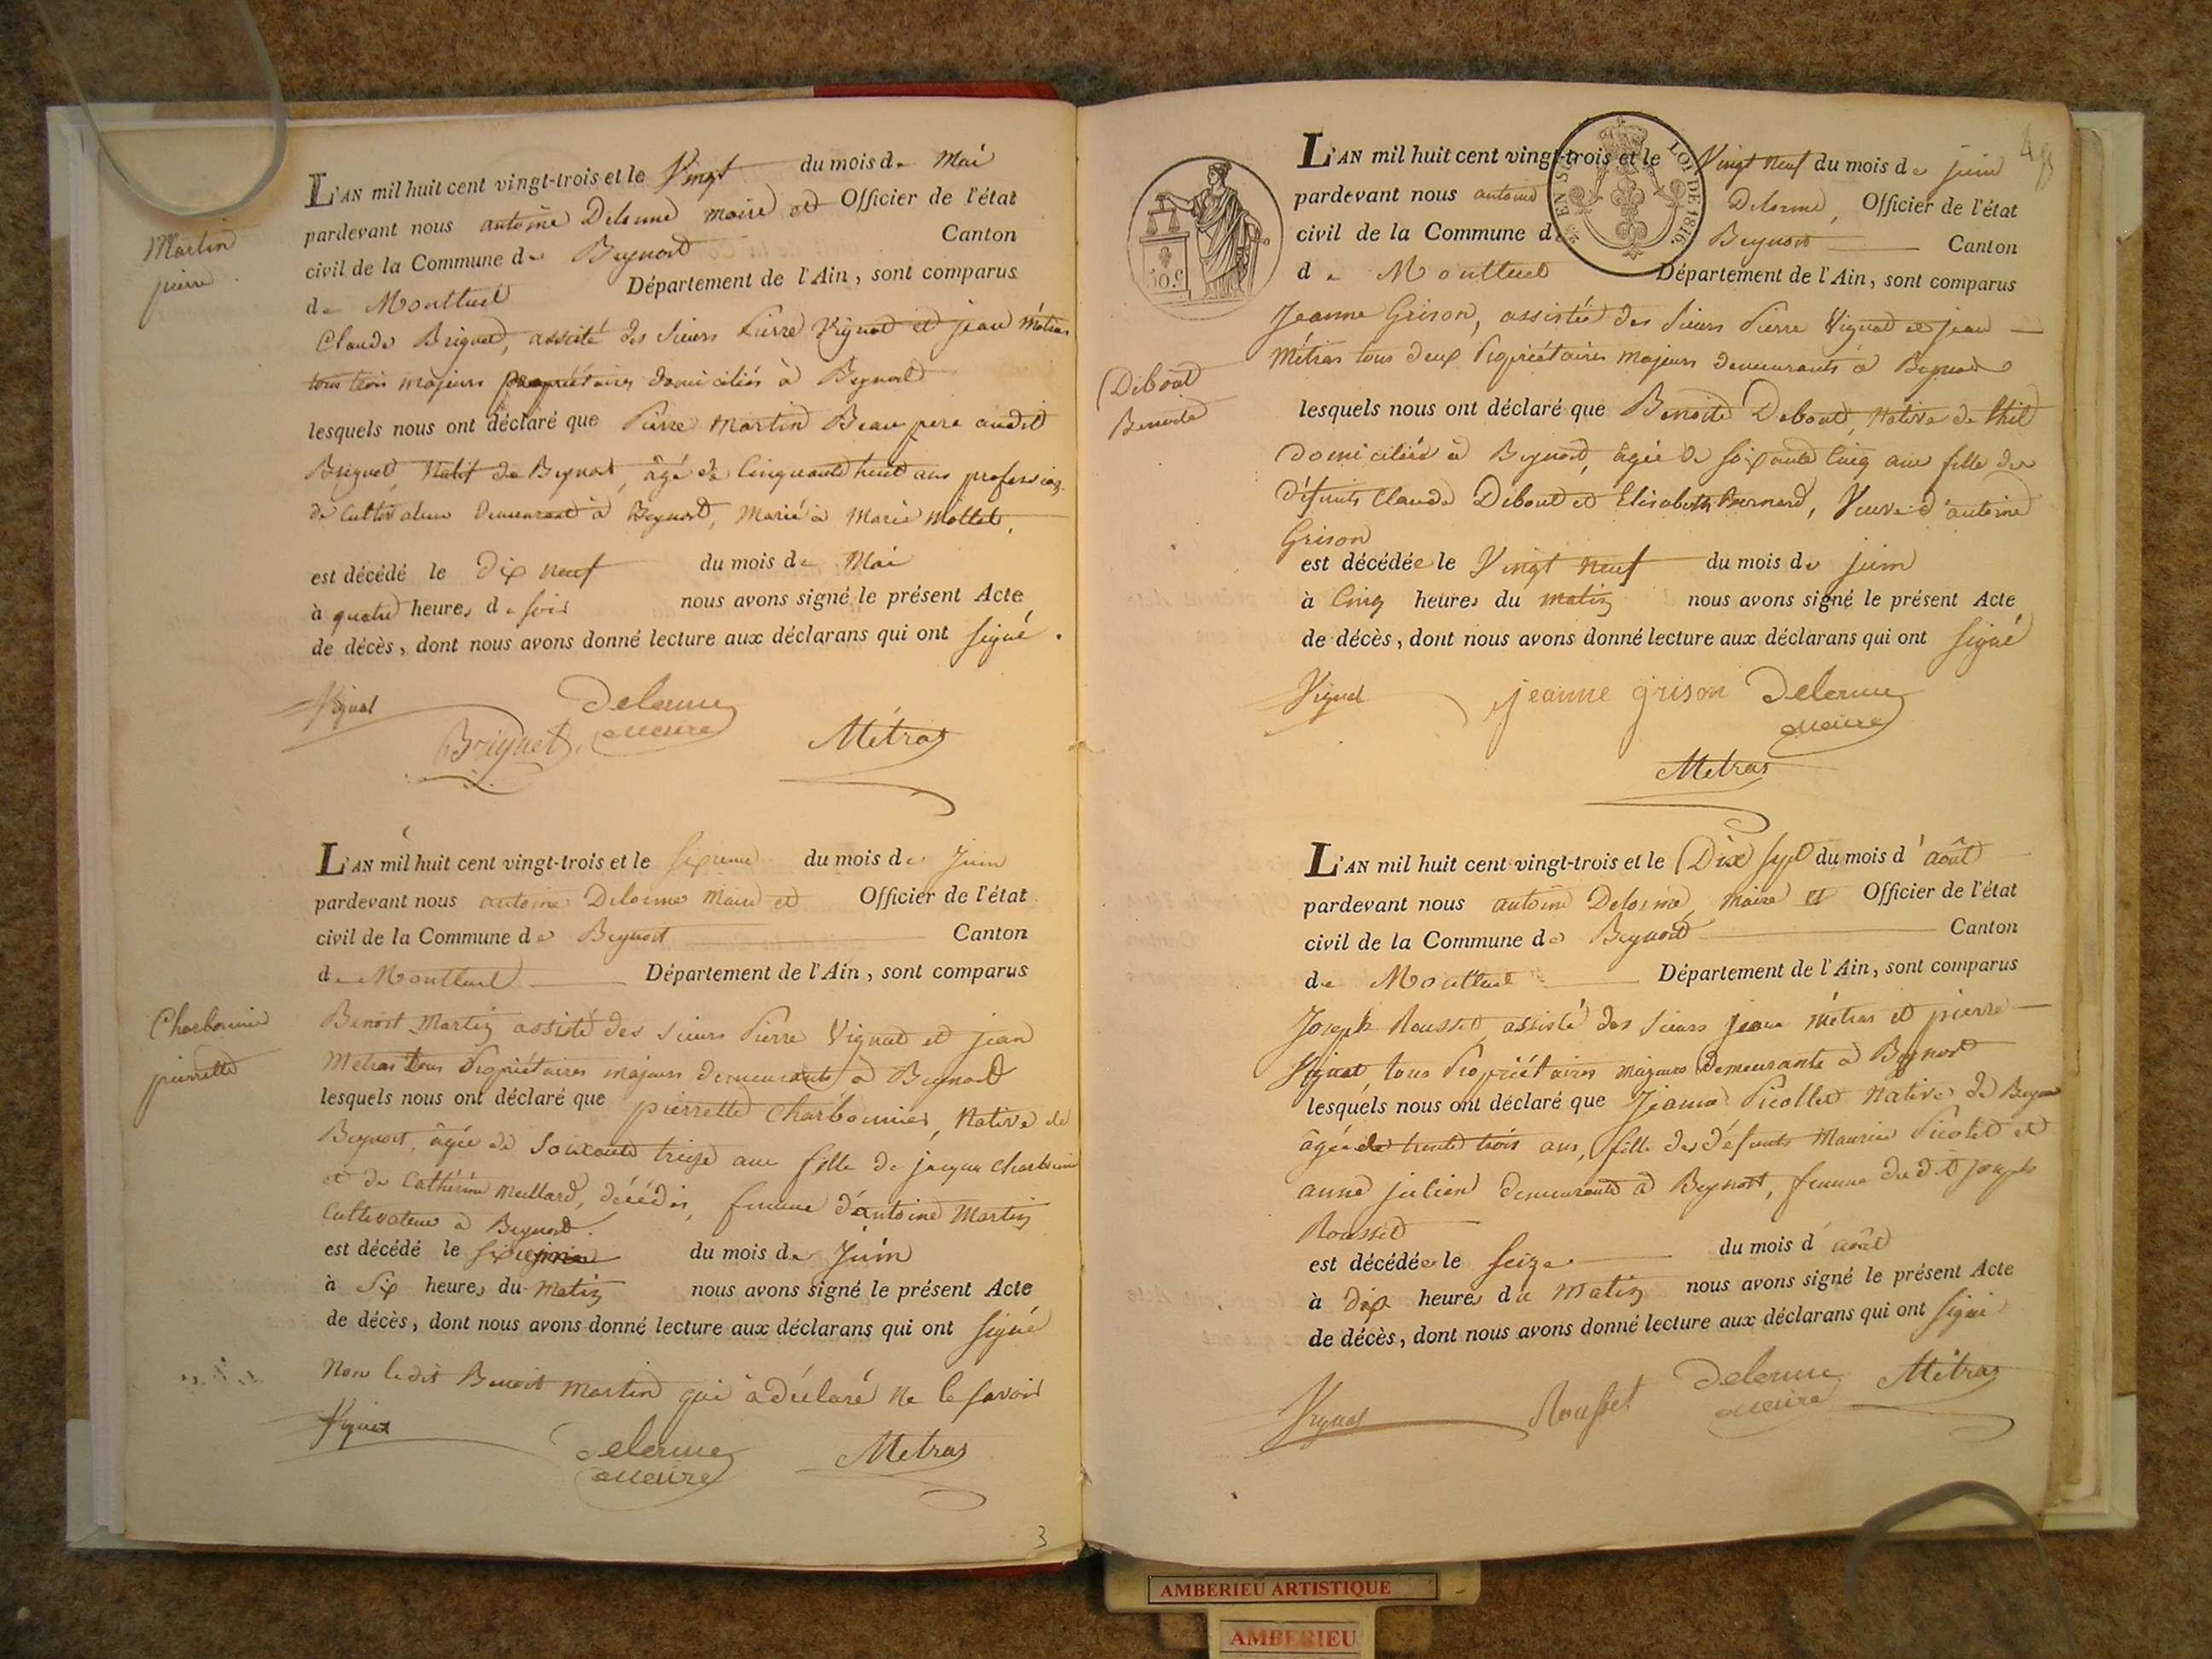 Martin
pierre
L'AN mil huit cent vingt-trois et le Vingt du mois de Mai
pardevant nous antoine Delorme maire et Officier de l'état
civil de la Commune de Beynost Canton
de Montluel Département de l'Ain, sont comparus
Claude Briguet, assisté des sieurs Pierre Vignat et jean Métras
tous trois majeurs propriétaires domiciliés à Beynost
lesquels nous ont déclaré que Pierre Martin Beau pere audit
Briguet, Natif de Beynost, âgé de Cinquante huit ans profession
de Cultivateur demeurant à Beynost, Marié à Marie Mollet,
est décédé le dix neuf du mois de Mai
à quatre heures de soir nous avons signé le présent Acte
de décès, dont nous avons donné lecture aux déclarans qui ont signé.
Vignat Delorme
Briguet maire Métras
Charbonnier
pierrette
L'AN mil huit cent vingt-trois et le sixieme du mois de Juin
pardevant nous antoine Delorme Maire et Officier de l'état
civil de la Commune de Beynost Canton
de Montluel Département de l'Ain, sont comparus
Benoit Martin assisté des sieurs Pierre Vignat et jean
Metras tous Propriétaires majeurs demeurants à Beynost
lesquels nous ont déclaré que pierrette Charbonnier, Native de
Beynost, âgée de Soixante treize ans fille de jacques Charbonnier
et de Cathérine Meillard, décédés, femme d'antoine Martin
Cultivateur à Beynost.
est décédé le sixieme du mois de Juin
à Six heures du Matin nous avons signé le présent Acte
de décès, dont nous avons donné lecture aux déclarans qui ont signé
Non ledit Benoit Martin qui à déclaré ne le savoir
Vignat Delorme Metras
maire
3
LOI DE 1816.
50.C
Debout
Benoite
L'AN mil huit cent vingt-trois et le Vingt neuf du mois de juin
pardevant nous antoine Delorme, Officier de l'état
civil de la Commune de Beynost Canton
de Montluel Département de l'Ain, sont comparus
Jeanne Grison, assistée des sieurs Pierre Vignat et jean
Métras tous deux Propriétaires majeurs demeurants à Beynost
lesquels nous ont déclaré que Benoite Debout, Native de thil
domiciliée à Beynost, âgée de soixante Cinq ans fille des
défunts Claude Debout et Elisabeth Bernard, Veuve d'antoine
Grison
est décédée le Vingt neuf du mois de juin
à Cinq heures du matin nous avons signé le présent Acte
de décès, dont nous avons donné lecture aux déclarans qui ont signé
Vignat jeanne grison Delorme
maire
Metras
L'AN mil huit cent vingt-trois et le Dix sept du mois d'août
pardevant nous antoine Delorme, Maire et Officier de l'état
civil de la Commune de Beynost Canton
de Montluel Département de l'Ain, sont comparus
Joseph Rousset, assisté des sieurs jean métras et pierre
Vignat, tous Propriétaires majeurs Demeurants à Beynost
lesquels nous ont déclaré que Jeanne Picollet Native de Beynost
âgée de trente trois ans, fille des défunts Maurice Picolet et
anne julien demeurante à Beynost, femme dudit joseph
Rousset
est décédée le seize du mois d'août
à dix heures du Matin nous avons signé le présent Acte
de décès, dont nous avons donné lecture aux déclarans qui ont signé
Vignat Rousset Delorme Métras
maire
AMBERIEU ARTISTIQUE
AMBERIEU